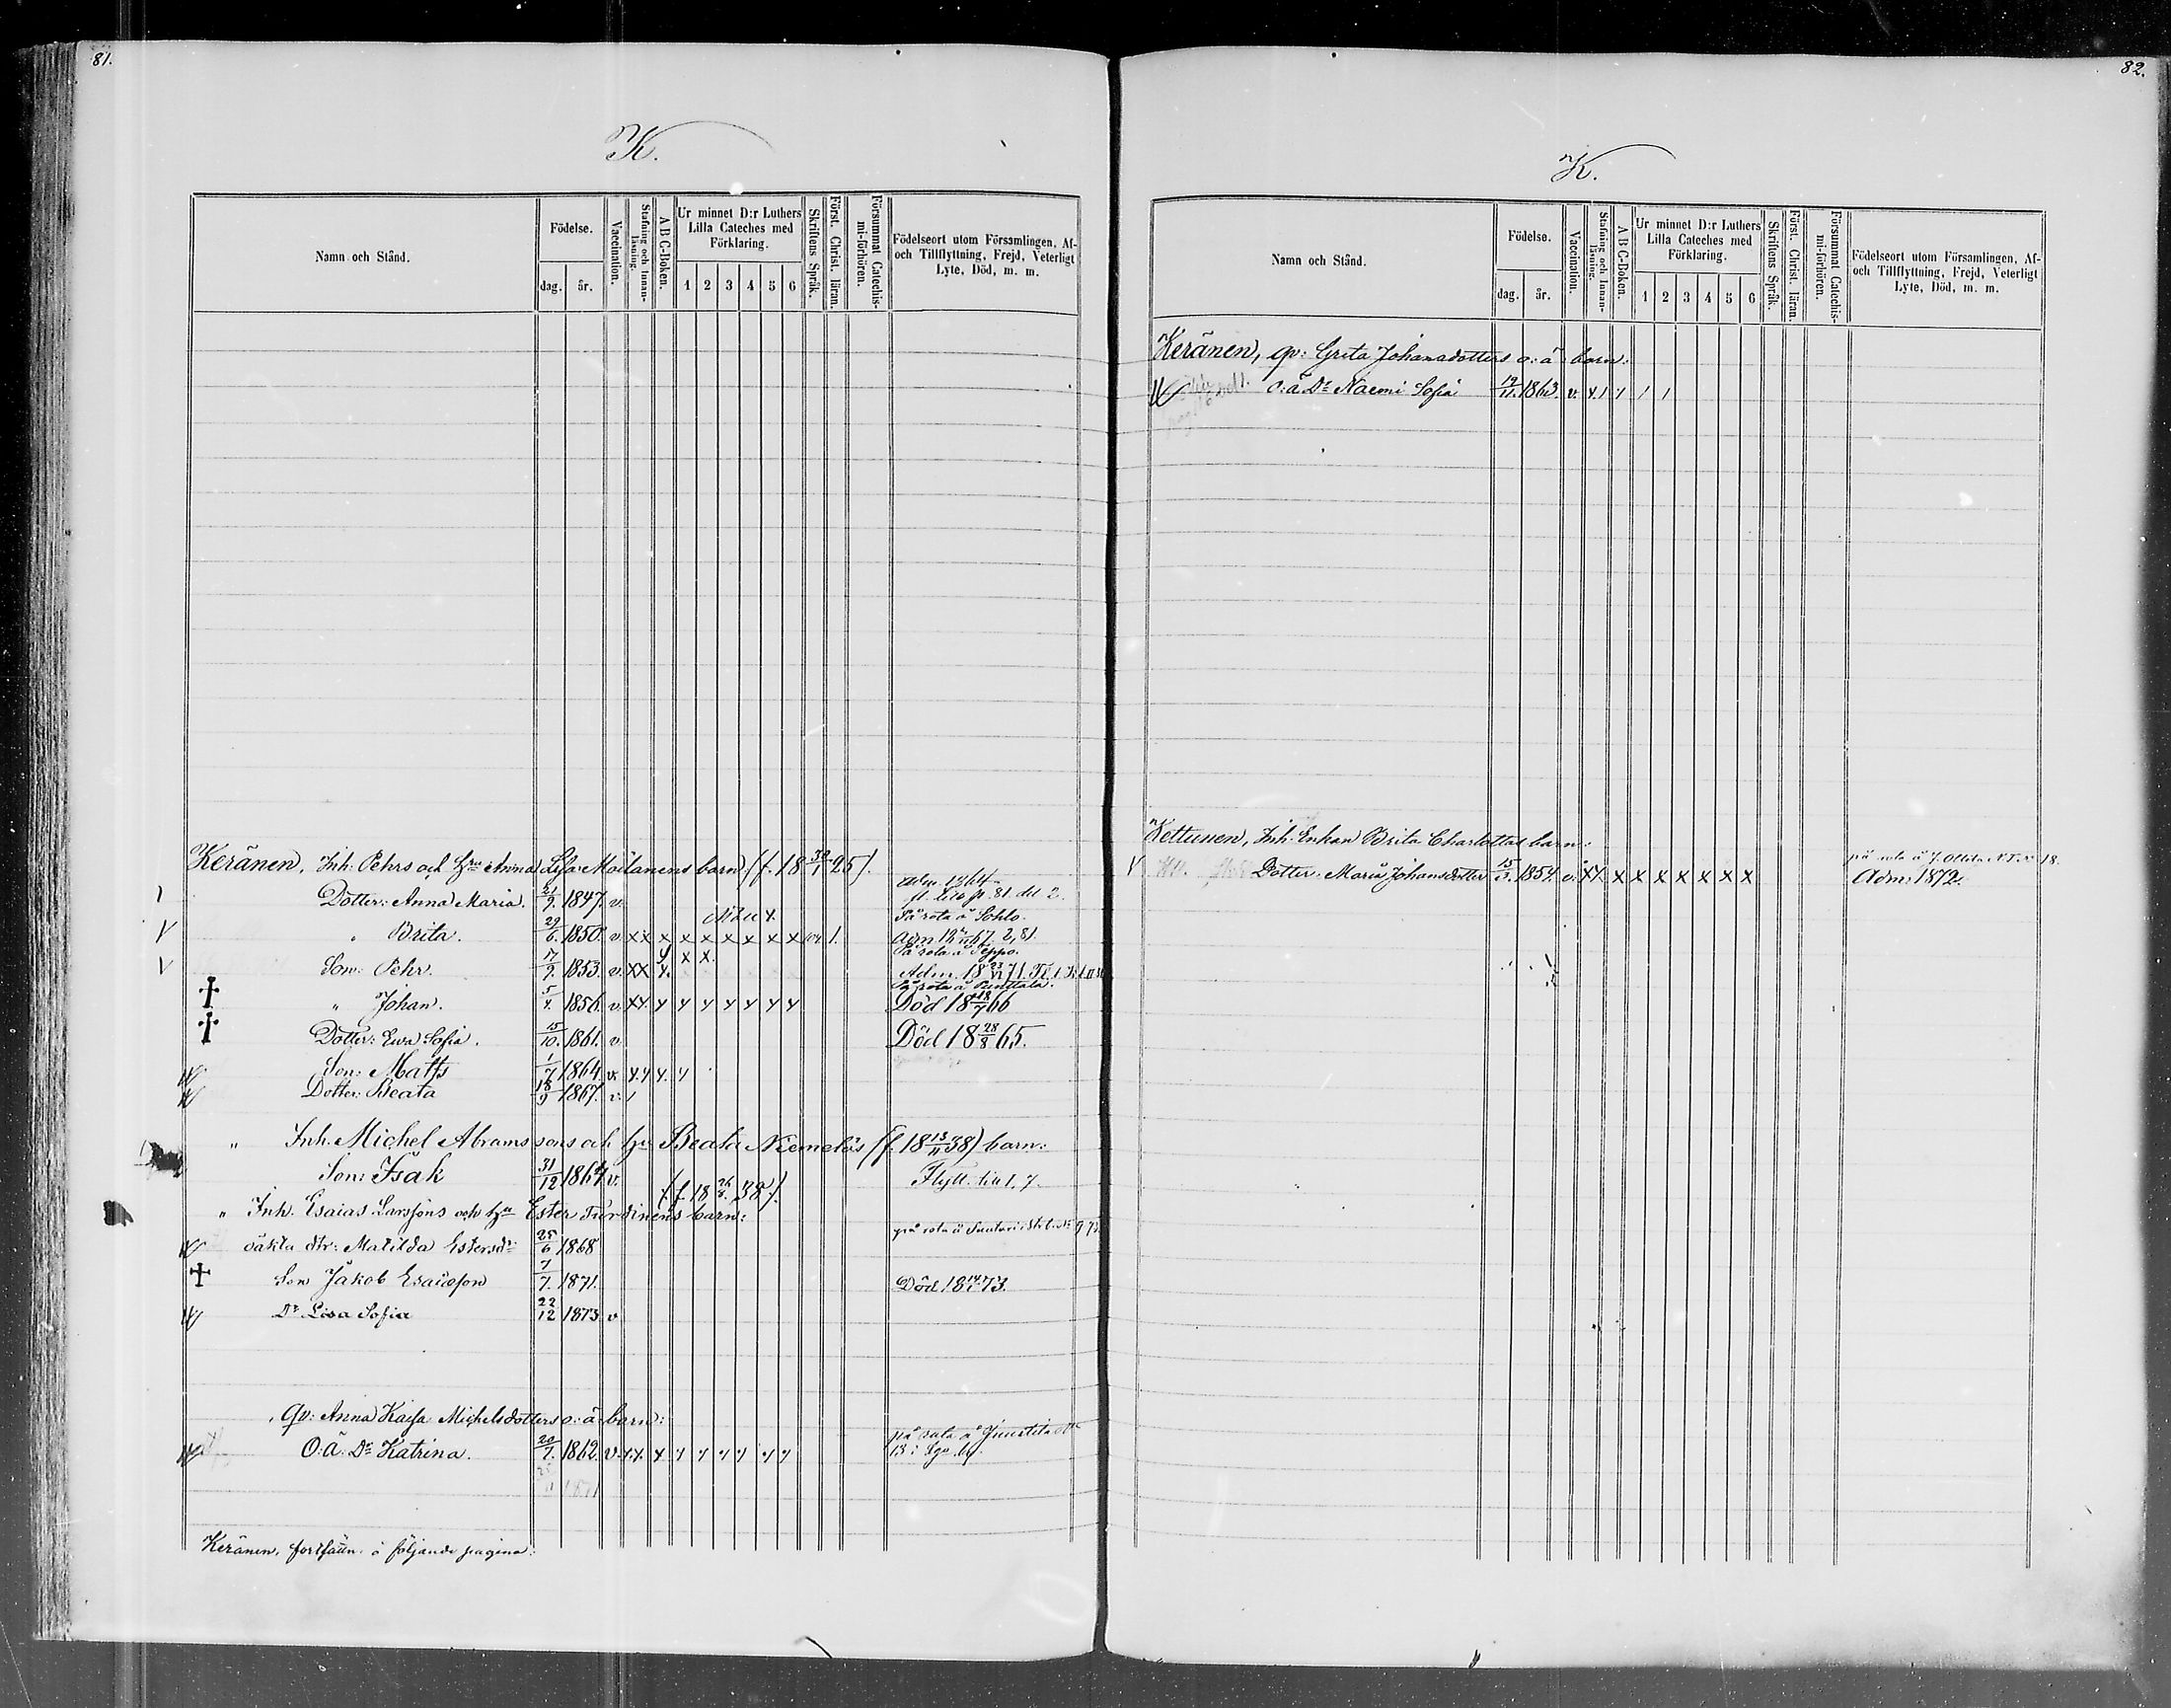 81.
K.
Namn och Stånd.
Födelse.
dag.
år.
Vaccination.
Stafning och Innan-
läsning.
A B C-Boken.
Ur minnet D:r Luthers
Lilla Cateches med
Förklaring.
1 2 3 4 5 6
Skriftens Språk.
Först. Christ. läran.
Försummat Catechis-
mi-förhören.
Födelseort utom Församlingen, Af-
och Tillflyttning, Frejd, Veterligt
Lyte, Död, m. m.
Keränen, Inh. Pehrs och Hru Anna Lisa Moilanens barn (f. 18 30/1 25).
Adm. 1864
Dotter: Anna Maria. 21/9. 1847. v. p. 81. del 2.
På rota å Sohlo.
" Brita. 29/6. 1850. v. x x x x x x x x x 1.
På rota å Seppo.
Son: Pehr. 17/9. 1853. v. x x x. x x Adm. 18 23/VI 71.
På rota å
" Johan. 5/4. 1856. v. x x. x x x x x x x Död 18 18/7 66
Dotter: Ewa Sofia. 15/10. 1861. v. Död 18 28/8 65.
Son: Matts 1/7 1864. v. x. x x. x
Dotter: Beata 18/9 1867. v. /
" Inh. Michel Abramssons och Hu Beata Niemeläs (f. 18 13/11 38) barn:
Son: Isak 31/12 1864 v. Flytt. till 1, 7.
(f. 18 26/8. 38).
" Inh. Esaias Larssons och Hru Ester Turdinens barn:
på rota å
oäkta dtr: Matilda Estersdr 25/6 1868
Son Jakob Esaiasson 7/7. 1871. Död 18 73.
Dr Lisa Sofia 22/12 1873 v
" Qv: Anna Kajsa Michelsdotters o: ä barn:
på rota å
O. ä. Dr Katrina. 20/7. 1862. v. x. x. x x x x x x x 13:
Keränen, å följande pagina.
82.
K.
Namn och Stånd.
Födelse.
dag.
år.
Vaccination.
Stafning och Innan-
läsning.
A B C-Boken.
Ur minnet D:r Luthers
Lilla Cateches med
Förklaring.
1 2 3 4 5 6
Skriftens Språk.
Först. Christ. läran.
Försummat Catechis-
mi-förhören.
Födelseort utom Församlingen, Af-
och Tillflyttning, Frejd, Veterligt
Lyte, Död, m. m.
Keränen, qv: Greta Johansdotters o: ä barn:
o: ä Dr Naemi Sofia 19/11. 1863. v. x. / / / /
Kettunen, Inh. Enkan Brita Charlottas barn:
på rota å 18.
Dotter. Maria Johansdotter 15/3. 1854. v. x x. x x x x x x x Adm: 1872.